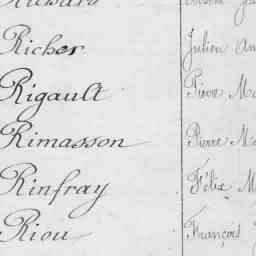 Richer Julien
Rigault Pierre
Rimasson Pierre
Rinfray Félix
Riou François